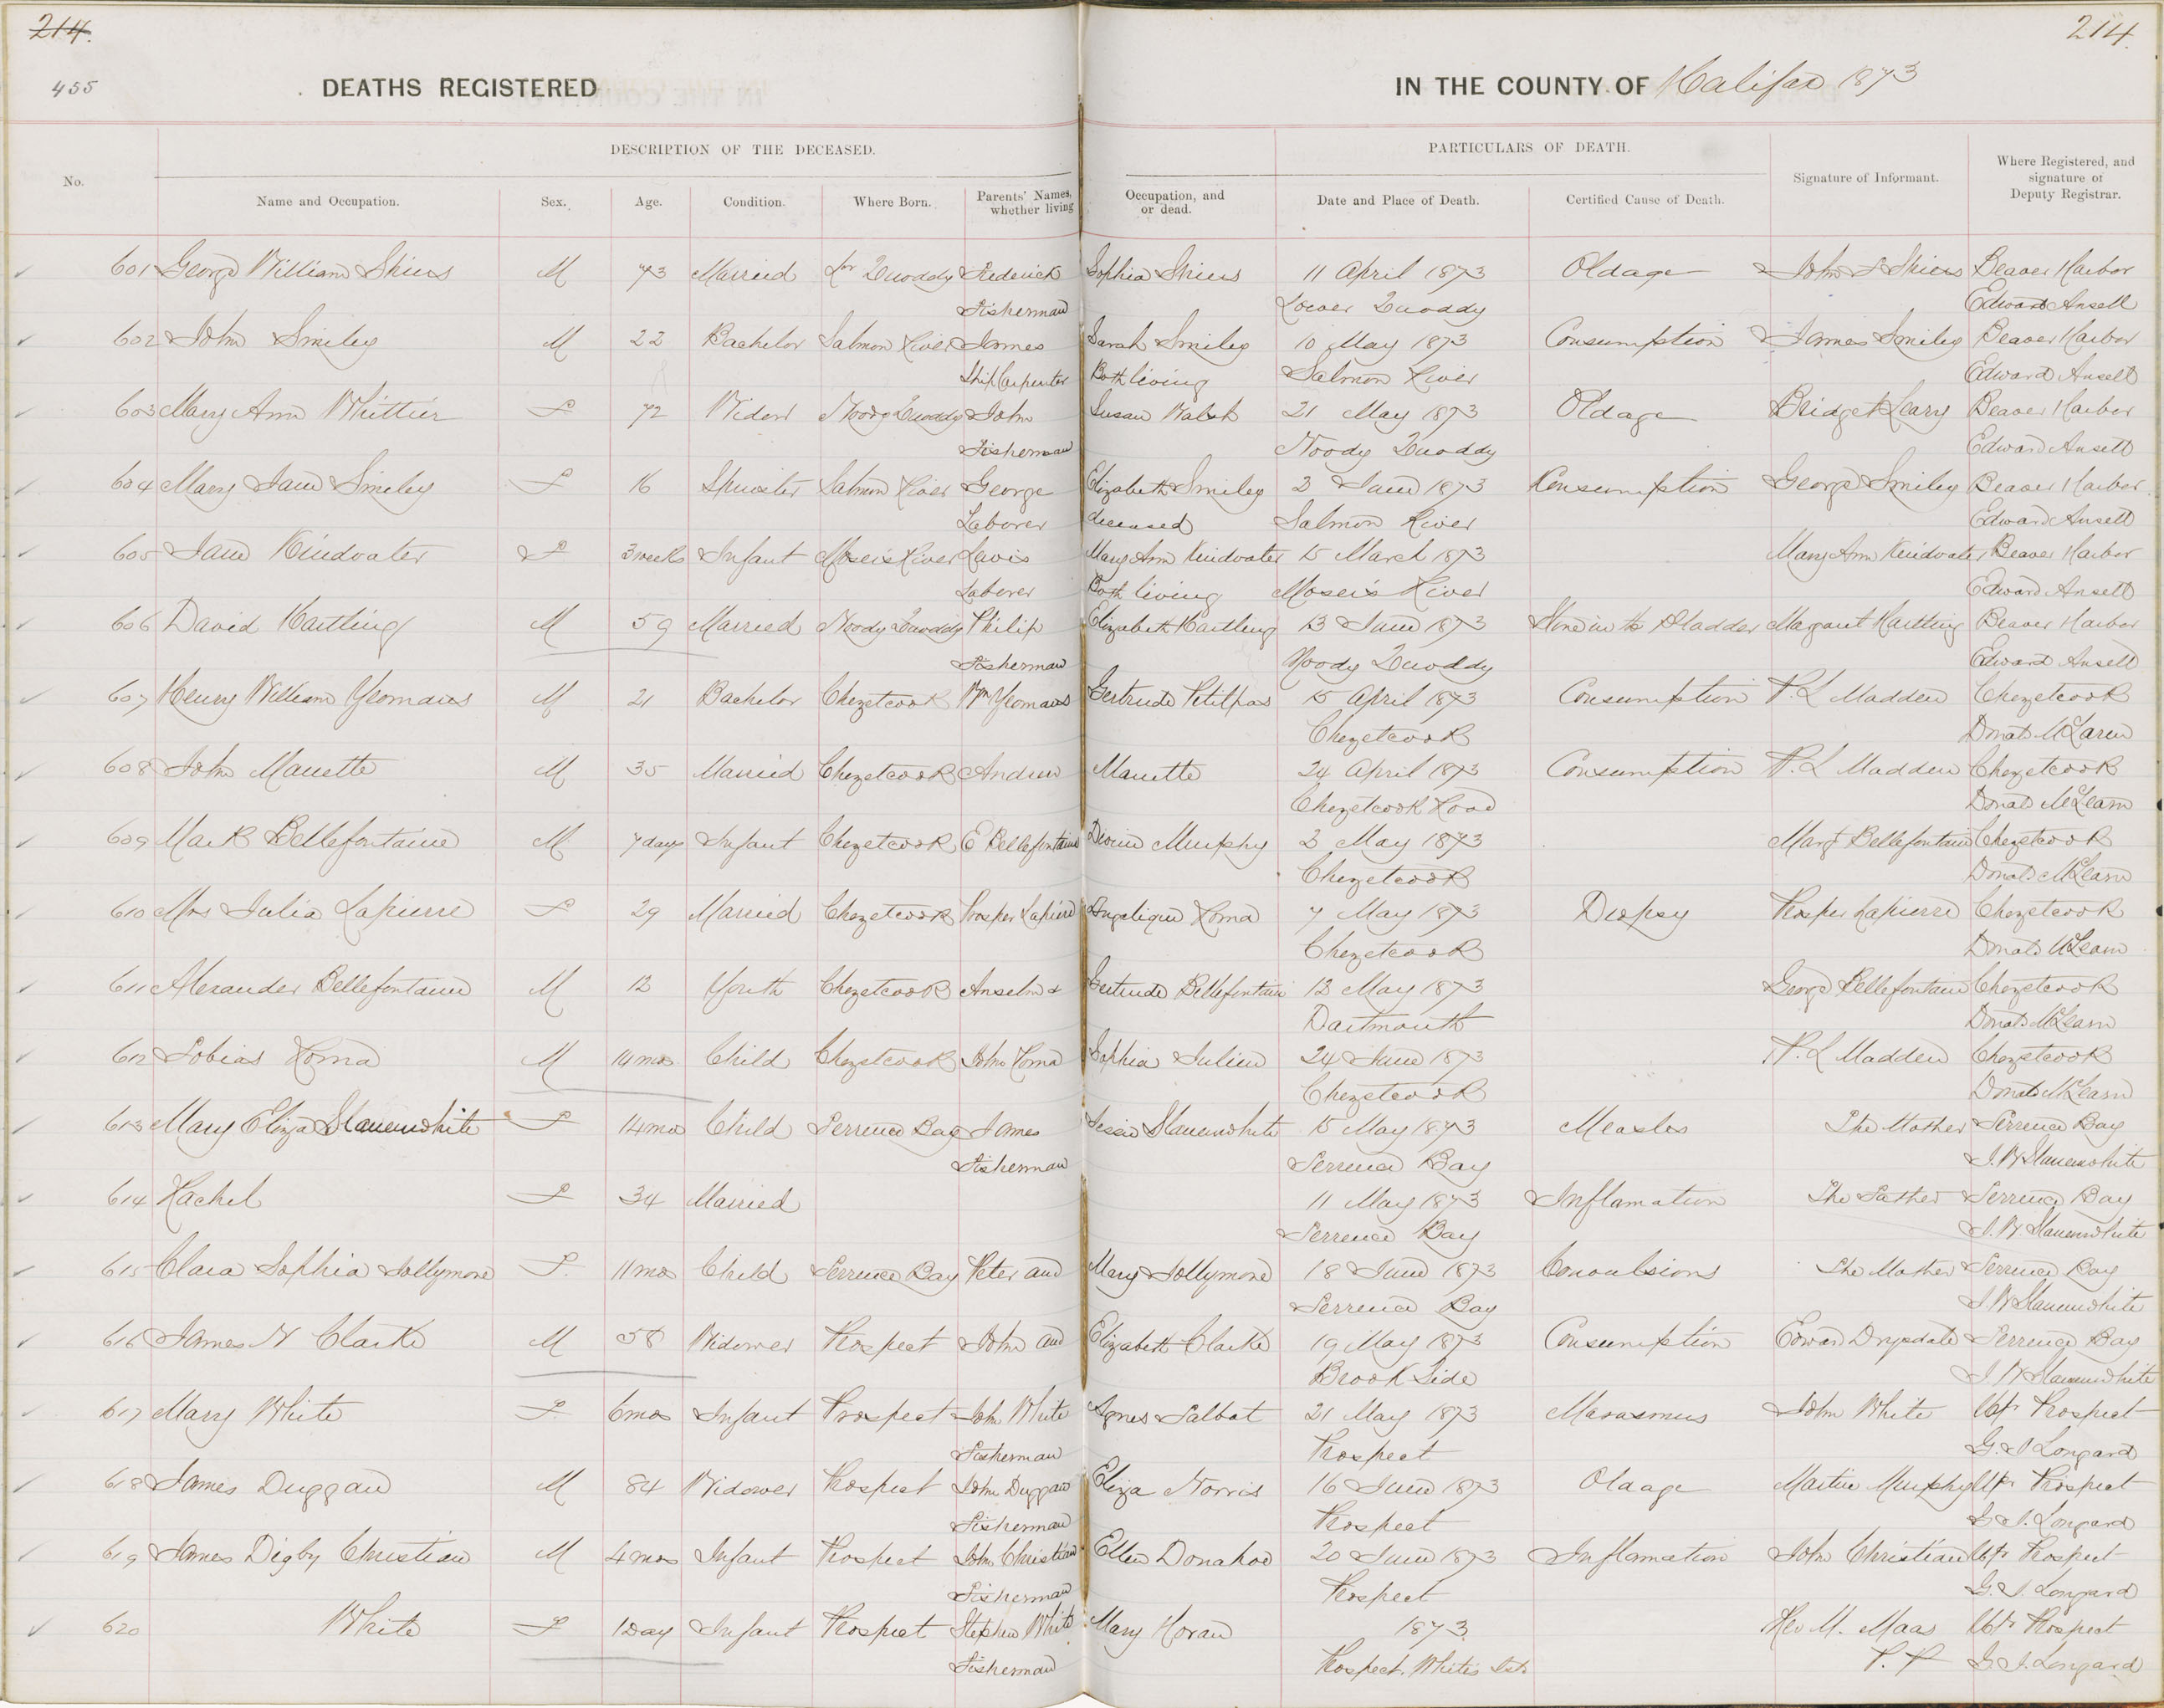 214.
214.
455
DEATHS REGISTERED
IN THE COUNTY OF Halifax 1873
DESCRIPTION OF THE DECEASED.
PARTICULARS OF DEATH.
No.
Name and Occupation.
Sex.
Age.
Condition.
Where Born.
Parents' Names, whether living
Occupation, and or dead.
Date and Place of Death.
Certified Cause of Death.
Signature of Informant.
Where Registered, and signature of Deputy Registrar.
601 George William Skiers M 73 Married Lr Quoddy Frederick Sophia Skiers 11 April 1873 Oldage John Skiers Beaver Harbor
Fisherman Lower Quoddy Edward Ansell
602 John Smiley M 22 Bachelor Salmon River James Sarah Smiley 10 May 1873 Consumption James Smiley Beaver Harbor
Ship Carpenter Both living Salmon River Edward Ansell
603 Mary Ann Whittier F 72 Widow Noody Quoddy John Susan Walsh 21 May 1873 Oldage Bridget Leary Beaver Harbor
Fisherman Noody Quoddy Edward Ansell
604 Mary Jane Smiley F 16 Spinster Salmon River George Elizabeth Smiley 2 June 1873 Consumption George Smiley Beaver Harbor
Laborer deceased Salmon River Edward Ansell
605 Jane Kindvater F 3 weeks Infant Moseis River Lavis Mary Ann Kindvater 15 March 1873 Mary Ann Kindvater Beaver Harbor
Laborer Both living Moseis River Edward Ansell
606 David Hartling M 59 Married Noody Quoddy Philip Elizabeth Hartling 13 June 1873 Stone in the Bladder Margaret Hartling Beaver Harbor
Fisherman Noody Quoddy Edward Ansell
607 Henry William Yeomans M 21 Bachelor Chezetcook Wm Yeomans Gertrude Petitpas 15 April 1873 Consumption P. L Madden Chezetcook
Chezetcook Donald McLaren
608 John Manette M 35 Married Chezetcook Andrew Manette 24 April 1873 Consumption P. L Madden Chezetcook
Chezetcook Road Donald McLearn
609 Mark Bellefontaine M 7 days Infant Chezetcook E Bellefontaine Murphy 2 May 1873 Margt Bellefontain Chezetcook
Chezetcook Donald McLearn
610 Mrs Julia Lapierre F 29 Married Chezetcook Prosper Lapierre Angelique Roma 7 May 1873 Dropsy Prosper Lapierre Chezetcook
Chezetcook Donald McLearn
611 Alexander Bellefontaine M 12 Youth Chezetcook Anselm & Gertrude Bellefontain 12 May 1873 George Bellefontain Chezetcook
Dartmouth Donald McLearn
612 Tobias Roma M 14 mos Child Chezetcook John Roma Sophia Julien 24 June 1873 P. L Madden Chezetcook
Chezetcook Donald McLearn
613 Mary Eliza Slauenwhite F 14 mo Child Terrence Bay James Jessie Slauenwhite 15 May 1873 Measles The Mother Terrence Bay
Fisherman Terrence Bay J. W Slauenwhite
614 Rachel F 34 Married 11 May 1873 Inflamation The Father Terrence Bay
Terrence Bay J. W. Slauenwhite
615 Clara Sophia Jollymore F. 11 mos Child Terrence Bay Peter and Mary Jollymore 18 June 1873 Convulsions The Mother Terrence Bay
Terrence Bay J. W Slauenwhite
616 James N Clarke M 58 Widower Prospect John and Elizabeth Clarke 19 May 1873 Consumption Edward Drysdale Terrence Bay
Brook Side J W Slauenwhite
617 Mary White F. 6 mos Infant Prospect John White Agnes Talbot 21 May 1873 Marasmus John White Upr Prospect
Fisherman Prospect G. J Longard
618 James Duggan M 84 Widower Prospect John Duggan Eliza Norris 16 June 1873 Oldage Martin Murphy Upr Prospect
Fisherman Prospect G. J. Longard
619 James Digby Christian M 4 mos Infant Prospect John Christian Ellen Donahoe 20 June 1873 Inflamation John Christian Upr Prospect
Fisherman Prospect G. J. Longard
620 White F 1 Day Infant Prospect Stephen White Mary Horan 1873 Rev M. Maas Upr Prospect
Fisherman Prospect. Whites Isld P. P G. J. Longard